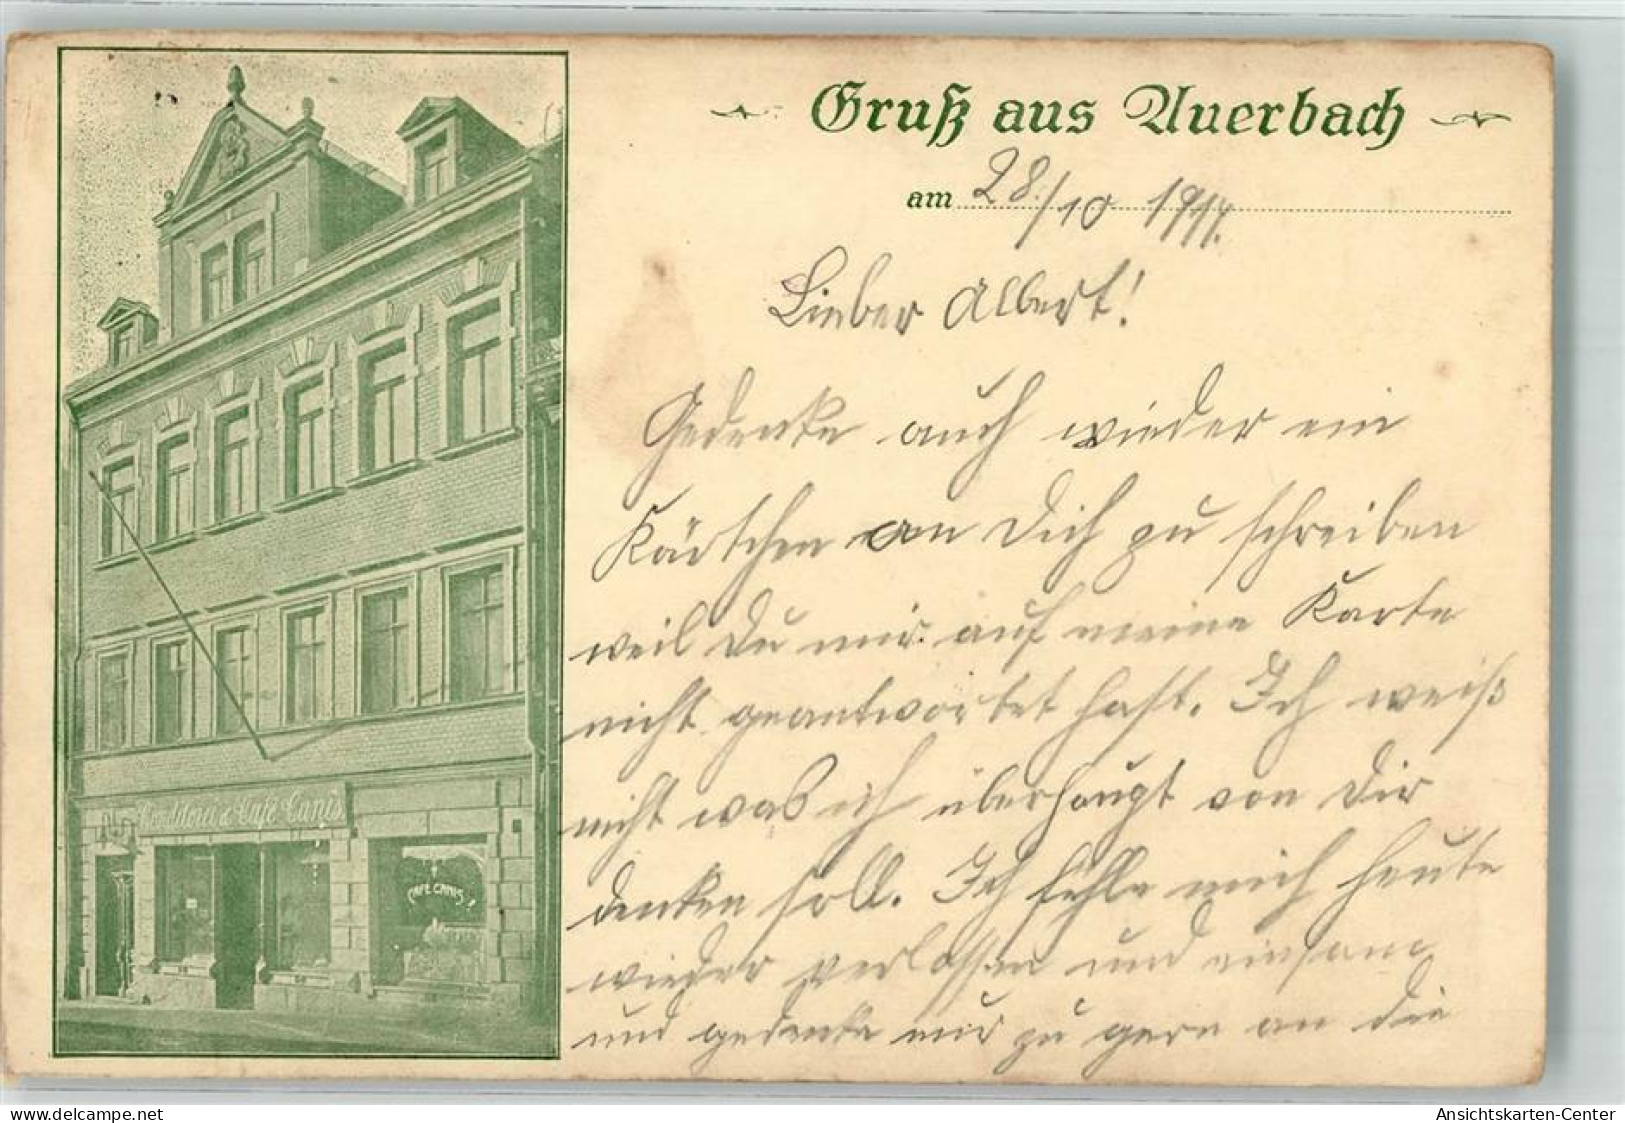 Gruß aus Auerbach
am 28/10 1917.
Lieber Albert!
Gedenke auch wieder ein
Kärtchen an Dich zu schreiben
weil Du mir auf meine Karte
nicht geantwortet hast. Ich weiß
nicht was ich überhaupt von Dir
denken soll. Ich fühle mich heute
wieder verlassen und einsam
und gedenke nur zu gern an die
Conditorei & Café Canis
CAFE CANIS
oldthing.de
Ansichtskarten-Center